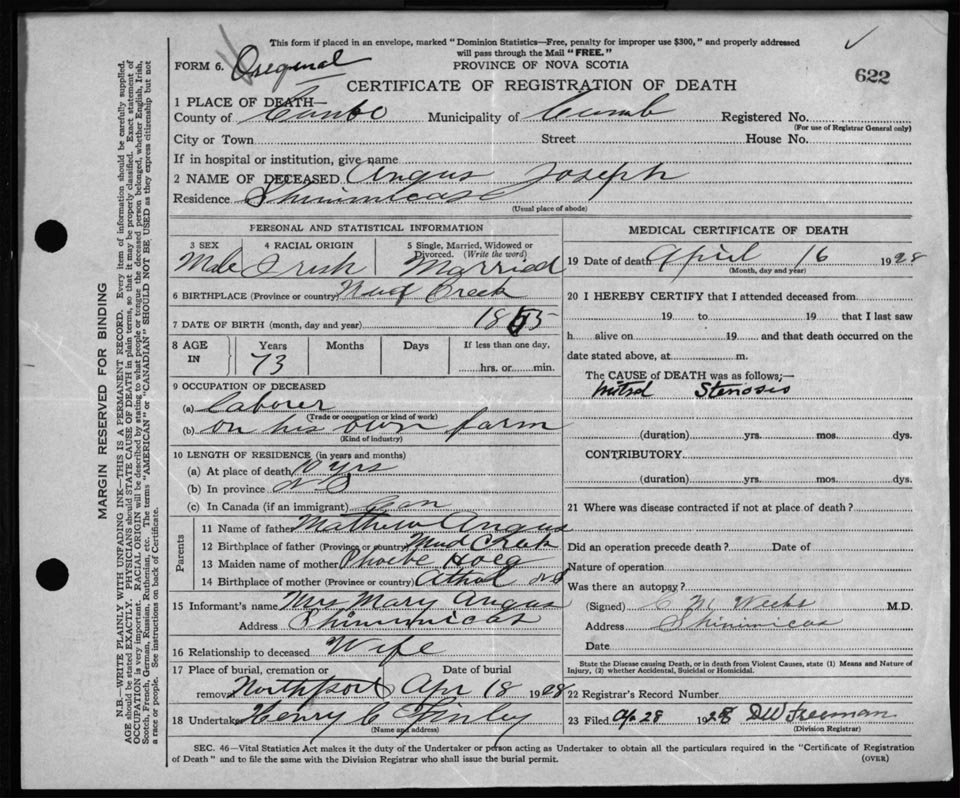 This form if placed in an envelope, marked "Dominion Statistics—Free, penalty for improper use $300," and properly addressed
will pass through the Mail "FREE."
FORM 6. Original
PROVINCE OF NOVA SCOTIA
622
CERTIFICATE OF REGISTRATION OF DEATH
1 PLACE OF DEATH—
County of Municipality of Cumb Registered No.
(For use of Registrar General only)
City or Town Street House No.
If in hospital or institution, give name
2 NAME OF DECEASED Angus Joseph
Residence Shinimicas
(Usual place of abode)
PERSONAL AND STATISTICAL INFORMATION
3 SEX 4 RACIAL ORIGIN 5 Single, Married, Widowed or Divorced. (Write the word)
Male Irish Married
6 BIRTHPLACE (Province or country) Mud Creek
7 DATE OF BIRTH (month, day and year) 1855
8 AGE IN Years Months Days If less than one day,
73 hrs. or min.
9 OCCUPATION OF DECEASED
(a) Laborer
(Trade or occupation or kind of work)
(b) on his own farm
(Kind of industry)
10 LENGTH OF RESIDENCE (in years and months)
(a) At place of death 10 yrs
(b) In province N S
(c) In Canada (if an immigrant) Can
Parents
11 Name of father Mathew Angus
12 Birthplace of father (Province or country) Mud Creek
13 Maiden name of mother Phoebe Hoeg
14 Birthplace of mother (Province or country) Athol N S
15 Informant's name Mrs Mary Angus
Address Shinimicas
16 Relationship to deceased Wife
17 Place of burial, cremation or Date of burial
removal Northport Apr 18 1928
18 Undertaker Henry C Finley
(Name and address)
MEDICAL CERTIFICATE OF DEATH
19 Date of death April 16 1928
(Month, day and year)
20 I HEREBY CERTIFY that I attended deceased from
19 to 19 that I last saw
h alive on 19 and that death occurred on the
date stated above, at m.
The CAUSE of DEATH was as follows;—
Mitral Stenosis
(duration) yrs. mos. dys.
CONTRIBUTORY
(duration) yrs. mos. dys.
21 Where was disease contracted if not at place of death?
Did an operation precede death? Date of
Nature of operation
Was there an autopsy?
(Signed) C M Weeks M.D.
Address Shinimicas
Date
State the Disease causing Death, or in death from Violent Causes, state (1) Means and Nature of
Injury, (2) whether Accidental, Suicidal or Homicidal.
22 Registrar's Record Number
23 Filed Ap 28 1928 DW Freeman
(Division Registrar)
SEC. 46—Vital Statistics Act makes it the duty of the Undertaker or person acting as Undertaker to obtain all the particulars required in the "Certificate of Registration
of Death" and to file the same with the Division Registrar who shall issue the burial permit.
(OVER)
MARGIN RESERVED FOR BINDING
N.B.—WRITE PLAINLY WITH UNFADING INK—THIS IS A PERMANENT RECORD. Every item of information should be carefully supplied.
AGE should be stated EXACTLY. PHYSICIANS should STATE CAUSE OF DEATH in plain terms, so that it may be properly classified. Exact statement of
OCCUPATION is very important. RACIAL ORIGIN will be described by stating to what people or tongue the deceased person belonged, whether English, Irish,
Scotch, French, German, Russian, Ruthenian, etc. The terms "AMERICAN" or "CANADIAN" SHOULD NOT BE USED as they express citizenship but not
a race or people. See instructions on back of Certificate.